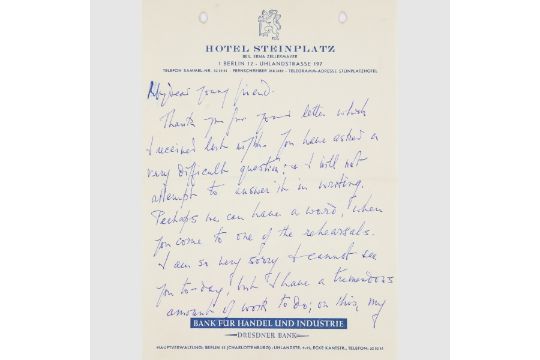 HOTEL STEINPLATZ
BES. ERNA ZELLERMAYER
1 BERLIN 12 - UHLANDSTRASSE 197
TELEFON SAMMEL-NR. FERNSCHREIBER TELEGRAMM-ADRESSE STEINPLATZHOTEL
My dear young friend.
Thank you for your letter which
I received last night. You have asked a
very difficult question; & I will not
attempt to answer it in writing.
Perhaps we can have a word, when
you come to one of the rehearsals.
I am so very sorry I cannot see
you to-day, but I have a tremendous
amount of work to do; on this, my
BANK FÜR HANDEL UND INDUSTRIE
DRESDNER BANK
HAUPTVERWALTUNG: BERLIN 12 (CHARLOTTENBURG) - UHLANDSTR. ECKE KANTSTR., TELEFON: